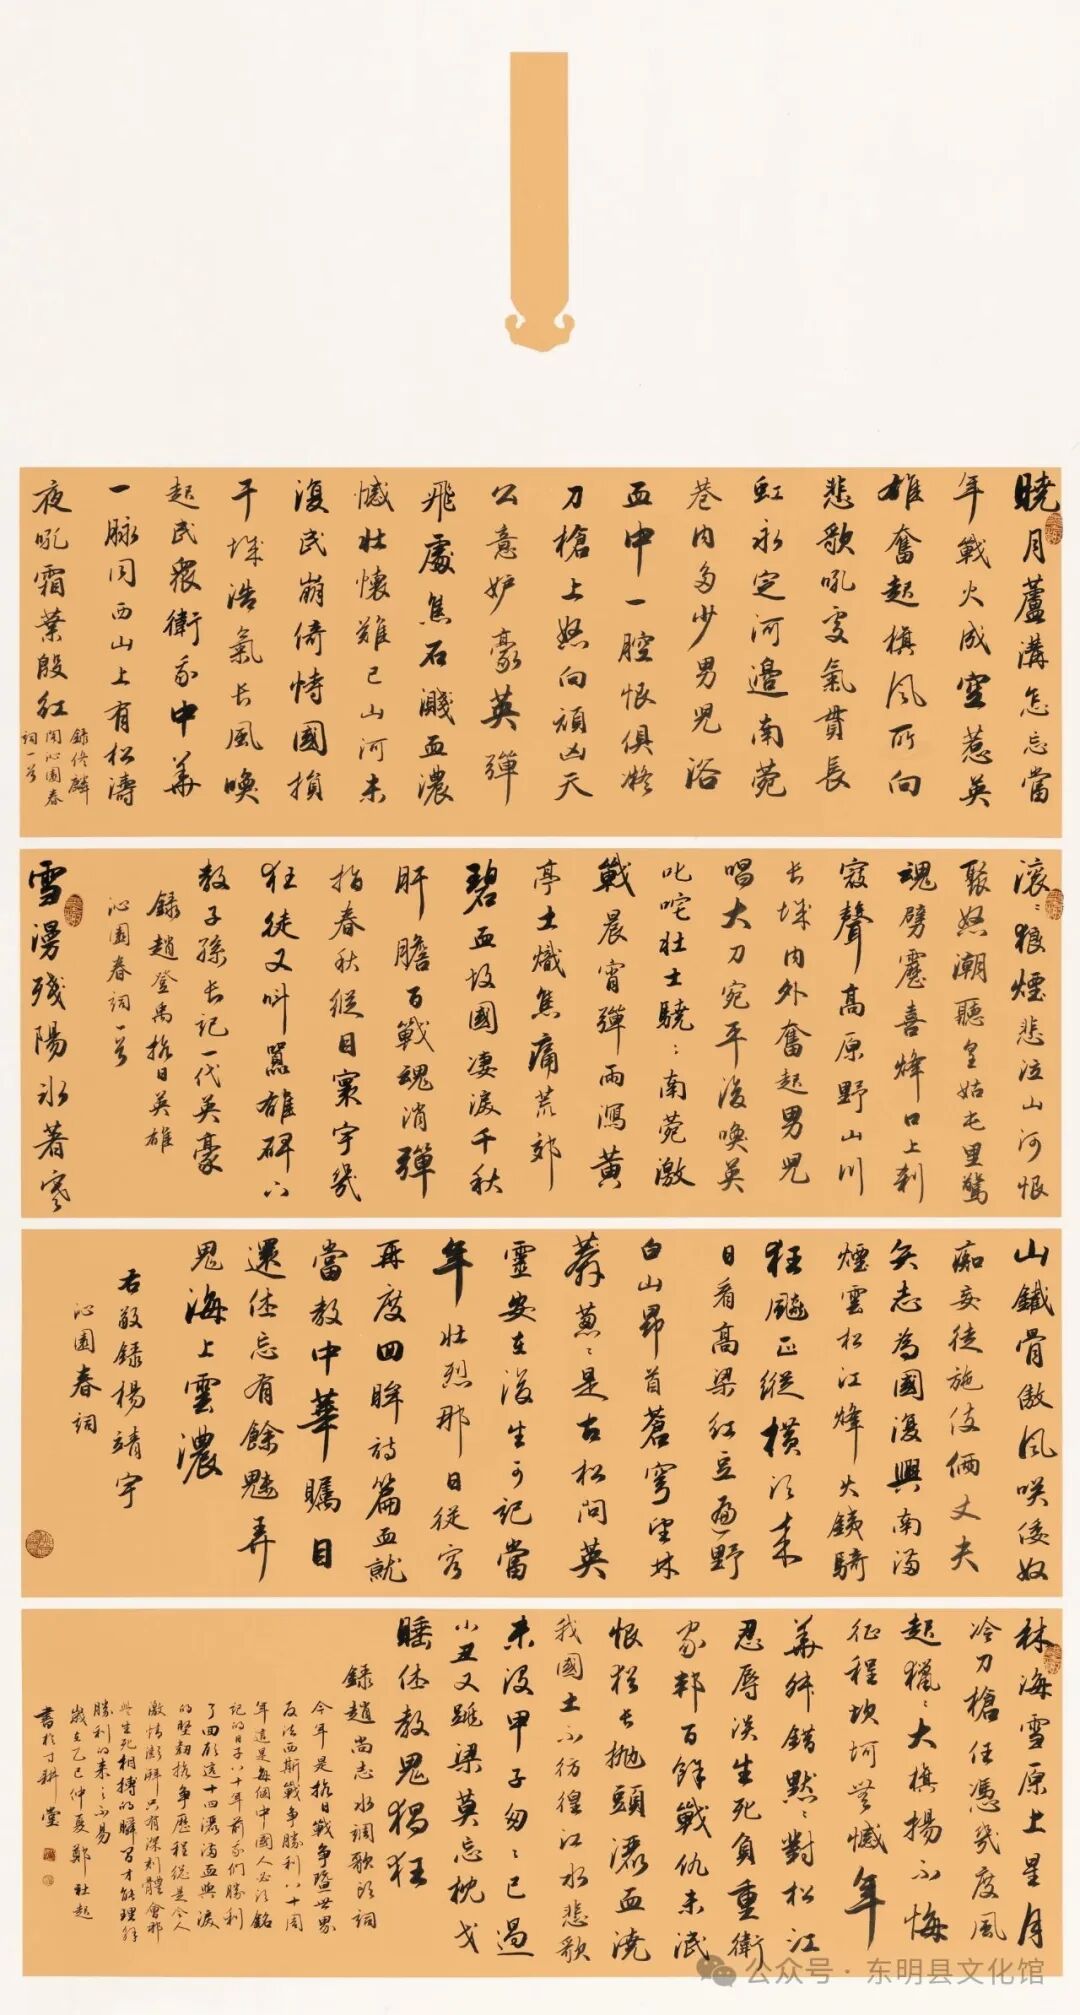 曉月蘆溝怎忘當
年戰火成空惹英
雄奮起旗風所向
悲歌吼處氣貫長
虹永定河邉南菀
巷内多少男兒浴
血中一腔恨俱凝
刀槍上怒向頑凶天
公意妒豪英彈
飛處焦石濺血濃
憾壯懷難已山河未
復民崩倚恃國損
干城浩氣長風喚
起民衆衛我中華
一脉同西山上有松濤
夜吼霜葉殷紅
錄佟麟
閣沁園春
詞一首
滾〻狼煙悲泣山河恨
聚怒潮聽皇姑屯里驚
魂劈靂喜烽口上刹
寇聲高原野山川
長城内外奮起男兒
唱大刀宛平後喚英
叱咤壯士驍〻南菀激
戰晨宵彈雨瀉黄
亭土熾焦痛荒郊
碧血故國淒淚千秋
肝膽百戰魂消彈
指春秋縱目寰宇幾
狂徒又叫囂雄碑下
教子孫長記一代英豪
錄趙登禹抗日英雄
沁園春詞一首
雪漫殘陽冰著寒
山鐵骨傲風咲倭奴
痴妄徒施伎倆丈夫
矢志為國復興南满
煙雲松江烽火鐵騎
狂飈正縱横從未
日看高梁紅豆遍野
白山昂首蒼穹望林
蕣蔥〻是古松問英
靈安在後生可記當
年壯烈那日從容
再度回眸詩篇血就
當教中華矚目
還任忘有餘魅弄
鬼海上雲濃
右敬錄楊靖宇
沁園春詞
林海雪原上星月
冷刀槍任憑幾度風
起獵〻大旗揚不悔
征程坎坷無憾年
華舛錯黙〻對松江
忍辱淡生死負重衛
家邦百餘戰仇未泯
恨猶長抛頭灑血澆
我國土不彷徨江水悲歌
未没甲子匆〻已過
小丑又跳梁莫忘枕戈
睡休教鬼猖狂
錄趙尚志水調歌頭詞
今年是抗日戰争暨世界
反法西斯戰争勝利八十周
年這是每個中國人必須銘
記的日子八十年前我們勝利
了回顧這十四年灑满血與淚
的堅韌抗争歷程總是令人
激情澎湃只有深刻體會那
些生死相搏的瞬間才能理解
勝利的來之不易
歲在乙巳仲夏鄭社起
書於寸耕堂
公众号·东明县文化馆